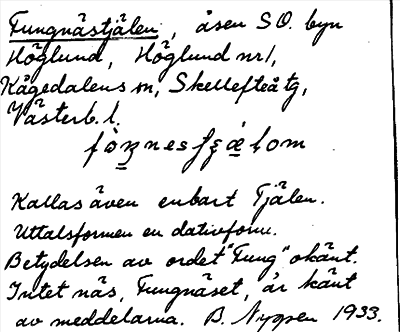 Fungnästjälen, åsen SO. byn
Höglund, Höglund nr 1,
Kågedalens sn, Skellefteå tg,
Västerb. l.
Kallas även enbart Tjälen.
Uttalsformen en dativform.
Betydelsen av ordet "Fung" okänt.
Intet näs, Fungnäset, är känt
av meddelarna. B. Nygren 1933.